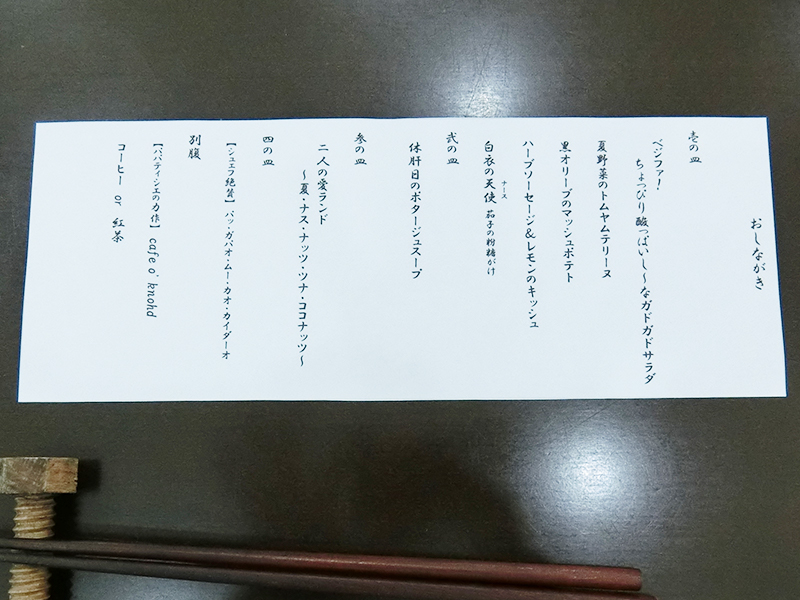 おしながき
壱の皿
ベジファー!
ちょっぴり酸っぱいし〜なガドガドサラダ
夏野菜のトムヤムテリーヌ
黒オリーブのマッシュポテト
ハーブソーセージ&レモンのキッシュ
白衣の天使 茄子の粉糖がけ
ナース
弐の皿
休肝日のポタージュスープ
参の皿
二人の愛ランド
〜夏・ナス・ナッツ・ツナ・ココナッツ〜
四の皿
【シュエフ絶賛】パッ・ガパオ・ムー・カオ・カイダーオ
別腹
【パパティシエの力作】 cafe o' knohd
コーヒー or 紅茶